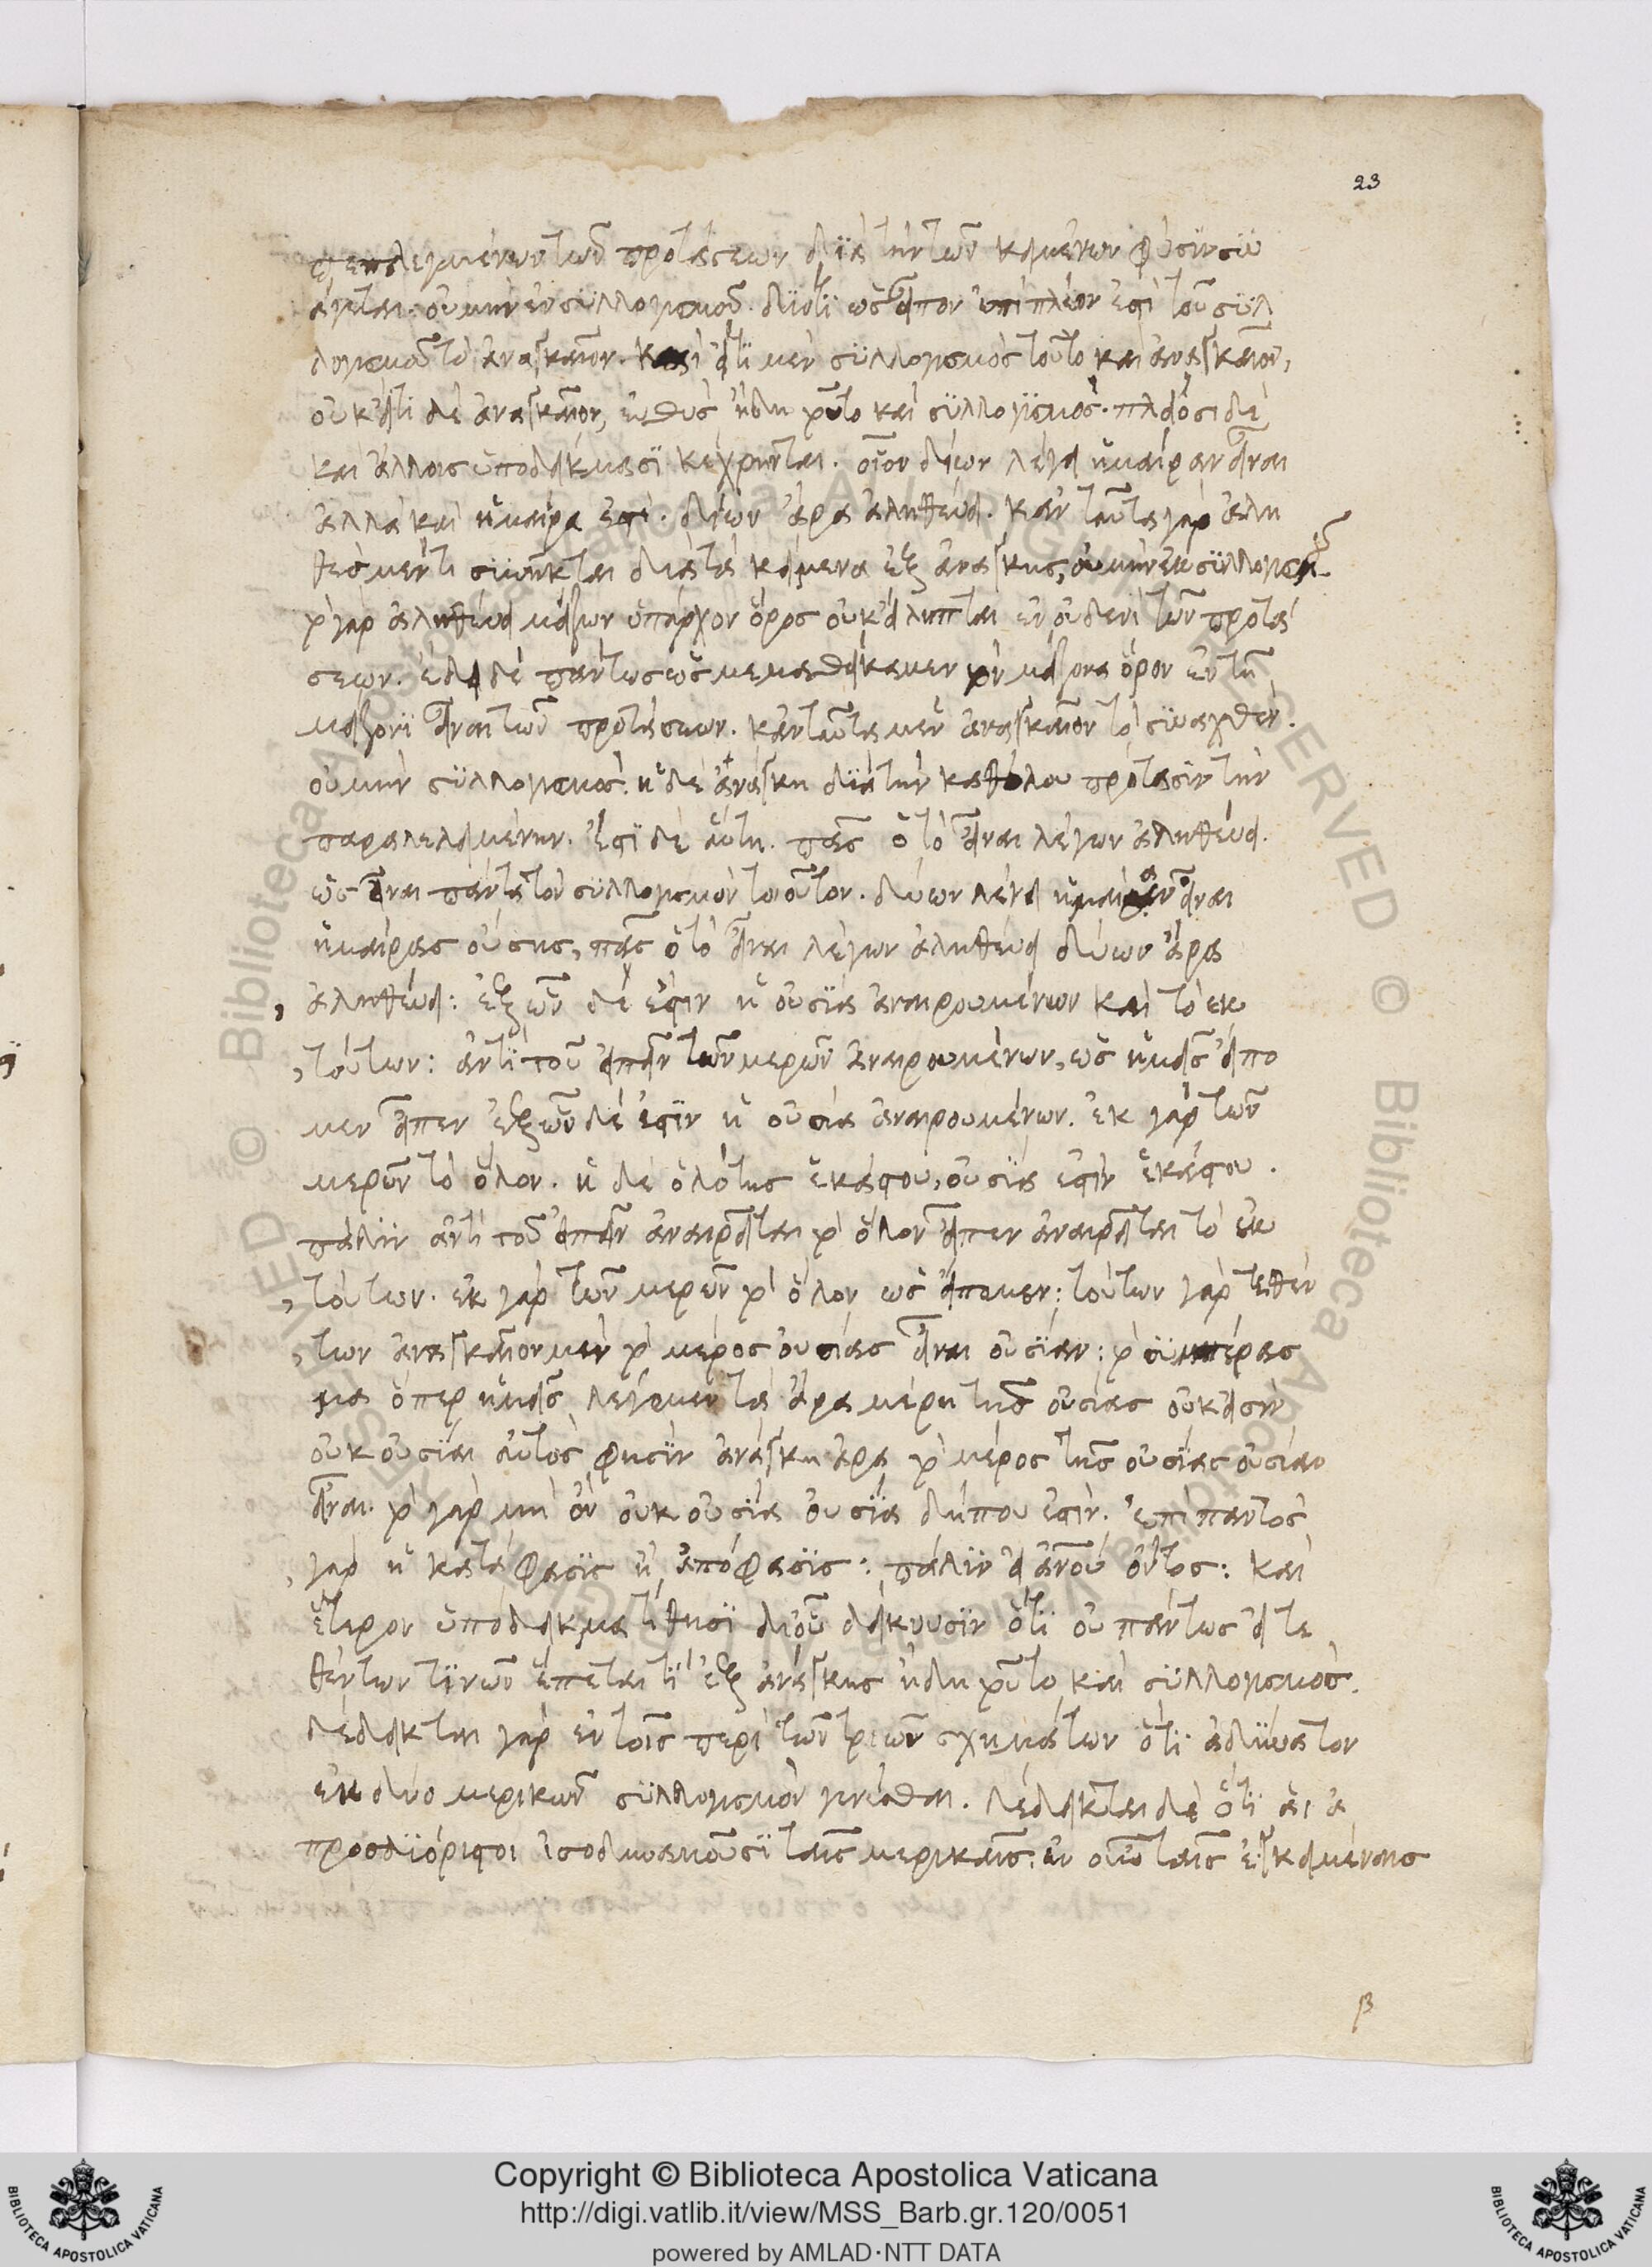 23
λεγμένων τῶν προτάσεων διὰ τὴν τῶν κειμένων φύσιν συ
άγεται· οὐ μὴν ἐν συλλογισμοῦ. διότι ὡς εἶπον ἐπιπλέον ἐστὶ τοῦ συλ
λογισμοῦ τὸ ἀναγκαῖον. καὶ εἴτι μὲν συλλογισμὸς τοῦτο καὶ ἀναγκαῖον,
οὐκ εἴτι δὲ ἀναγκαῖον, εὐθὺς ἤδη τοῦτο καὶ συλλογισμός. πλείοσι δὲ
καὶ ἄλλοις ὑποδείγμασι κέχρηνται. οἷον δίων λέγει ἡμέραν εἶναι
ἀλλὰ καὶ ἡμέρα ἐστί. δίων ἄρα ἀληθεύει. κἀνταῦτα γὰρ ἀλη
θὲς μέν τι συνῆκται διὰ τὰ κείμενα ἐξ ἀνάγκης, οὐ μὴν ἐκ συλλογισμ
τὸ γὰρ ἀληθεύει μείζων ὑπάρχον ὅρος οὐκ εἴληπται ἐν οὐδενὶ τῶν προτά
σεων. ἔδει δὲ πάντως ὡς μεμαθήκαμεν τὸν μείζονα ὅρον ἐν τῇ
μείζονι εἶναι τῶν προτάσεων. κἀνταῦτα μὲν ἀναγκαῖον τὸ συναχθέν.
οὐ μὴν συλλογισμός. ἡ δὲ ἀνάγκη διὰ τὴν καθόλου πρότασιν τὴν
παραλελειμμένην. ἔστι δὲ αὕτη. πᾶς ὁ τὸ εἶναι λέγων ἀληθεύει.
ὡς εἶναι πάντα τὸν συλλογισμὸν τοιοῦτον. δίων λέγει ἡμέραν εἶναι
ἡμέρας οὔσης, πᾶς ὁ τὸ εἶναι λέγων ἀληθεύει δίων ἄρα
, ἀληθεύει: ἐξ ὧν δέ ἐστιν ἡ οὐσία ἀναιρουμένων καὶ τὸ ἐκ
, τούτων: ἀντὶ τοῦ εἰπεῖν τῶν μερῶν ἀναιρουμένων, ὡς ἡμεῖς εἴπο
μεν εἶπεν ἐξ ὧν δέ ἐστιν ἡ οὐσία ἀναιρουμένων. ἐκ γὰρ τῶν
μερῶν τὸ ὅλον. ἡ δὲ ὁλότης ἑκάστου, οὐσία ἐστὶν ἑκάστου.
πάλιν ἀντὶ τοῦ εἰπεῖν ἀναιρεῖται τὸ ὅλον εἶπεν ἀναιρεῖται τὸ ἐκ
, τούτων. ἐκ γὰρ τῶν μερῶν τὸ ὅλον ὡς εἴπομεν: τούτων γὰρ τεθέν
, των ἀναγκαῖον μὲν τὸ μέρος οὐσίας εἶναι οὐσίαν: τὸ συμπέρας
μα ὅπερ ἡμεῖς λέγομεν τὰ ἄρα μέρη τῆς οὐσίας οὐκ εἰσὶν
οὐκ οὐσίαι αὐτὸς φησὶν ἀνάγκη ἄρα τὸ μέρος τῆς οὐσίας οὐσίαν
εἶναι. τὸ γὰρ μὴ ὂν οὐκ οὐσία οὐσία δήπου ἐστίν. ἐπὶ παντὸς
, γὰρ ἡ κατάφασις ἢ ἀπόφασις: πάλιν εἰ ἀνου ὄντος: καὶ
ἕτερον ὑπόδειγμα τίθησι δι οὗ δείκνυσιν ὅτι οὐ πάντως εἰ τε
θέντων τινῶν ἕπεται τὶ ἐξ ἀνάγκης ἤδη τοῦτο καὶ συλλογισμός.
δέδεικται γὰρ ἐν τοῖς περὶ τῶν τριῶν σχημάτων ὅτι ἀδύνατον
ἐκ δύο μερικῶν συλλογισμὸν γενέσθαι. δέδεικται δὲ ὅτι αἱ ἀ
προσδιόριστοι ἰσοδυναμοῦσι ταῖς μερικαῖς. ἐν οὖν ταῖς ἐγκειμέναις
β
Copyright © Biblioteca Apostolica Vaticana
http://digi.vatlib.it/view/MSS_Barb.gr.120/0051
powered by AMLAD·NTT DATA